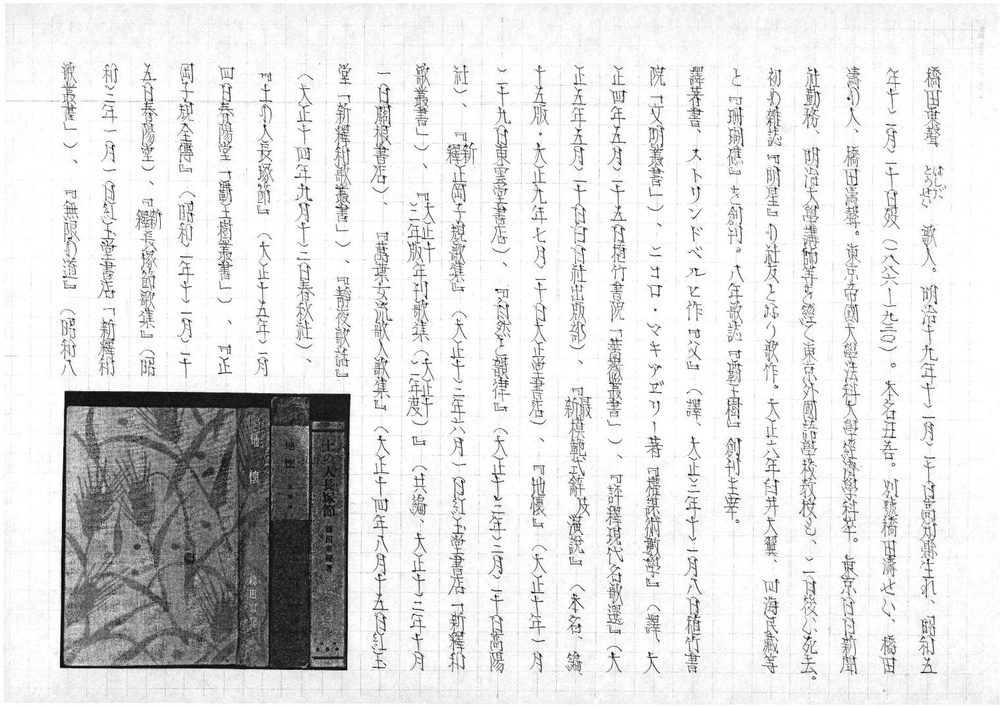 橋田東聲 はしだとうせい 歌人。明治十九年十二月二十日高知縣生れ、昭和五
年十二月二十日歿(一八八六—一九三〇)。本名丑吾。別號橋田濤せい、橋田
濤の人、橋田濤聲。東京帝國大學法科大學經濟學科卒。東京日日新聞
社勤務、明治大學講師等を經て東京外國語學校教授も、二日後に死去。
初め雜誌『明星』の社友となり歌作。大正六年臼井大翼、四海民藏等
と『珊瑚礁』を創刊。八年歌誌『覇王樹』創刊主宰。
譯著書、ストリンドベルヒ作『父』(譯、大正三年十一月八日植竹書
院「文明叢書」)、ニコロ・マキアヹリー著『權謀術數學』(譯、大
正四年五月二十五日植竹書院「薔薇叢書」)、『評釋現代名歌選』(大
正五年五月二十日白日社出版部)、『最新模範式辭及演説』(本名、編
十五版・大正九年七月二十日大正堂書店)、『地懷』(大正十年一月
二十九日東雲堂書店)、『自然と韻律』(大正十二年二月二十日高陽
社)、『新釋正岡子規歌集』(大正十二年六月一日紅玉堂書店「新釋和
歌叢書」)、『大正十三年版年刊歌集(大正十二年度)』(共編、大正十三年十月
一日關根書店)、『萬葉女流歌人歌集』(大正十四年八月十五日紅玉
堂「新釋和歌叢書」)、『靜夜歌話』
(大正十四年九月十二日春秋社)、
『土の人長塚節』(大正十五年二月
四日春陽堂「覇王樹叢書」)、『正
岡子規全傳』(昭和二年十二月二十
五日春陽堂)、『新釋長塚節歌集』(昭
和三年一月一日紅玉堂書店「新釋和
歌叢書」)、『無限の道』(昭和八
地懷
地懷
土の人長塚節 橋田東聲著